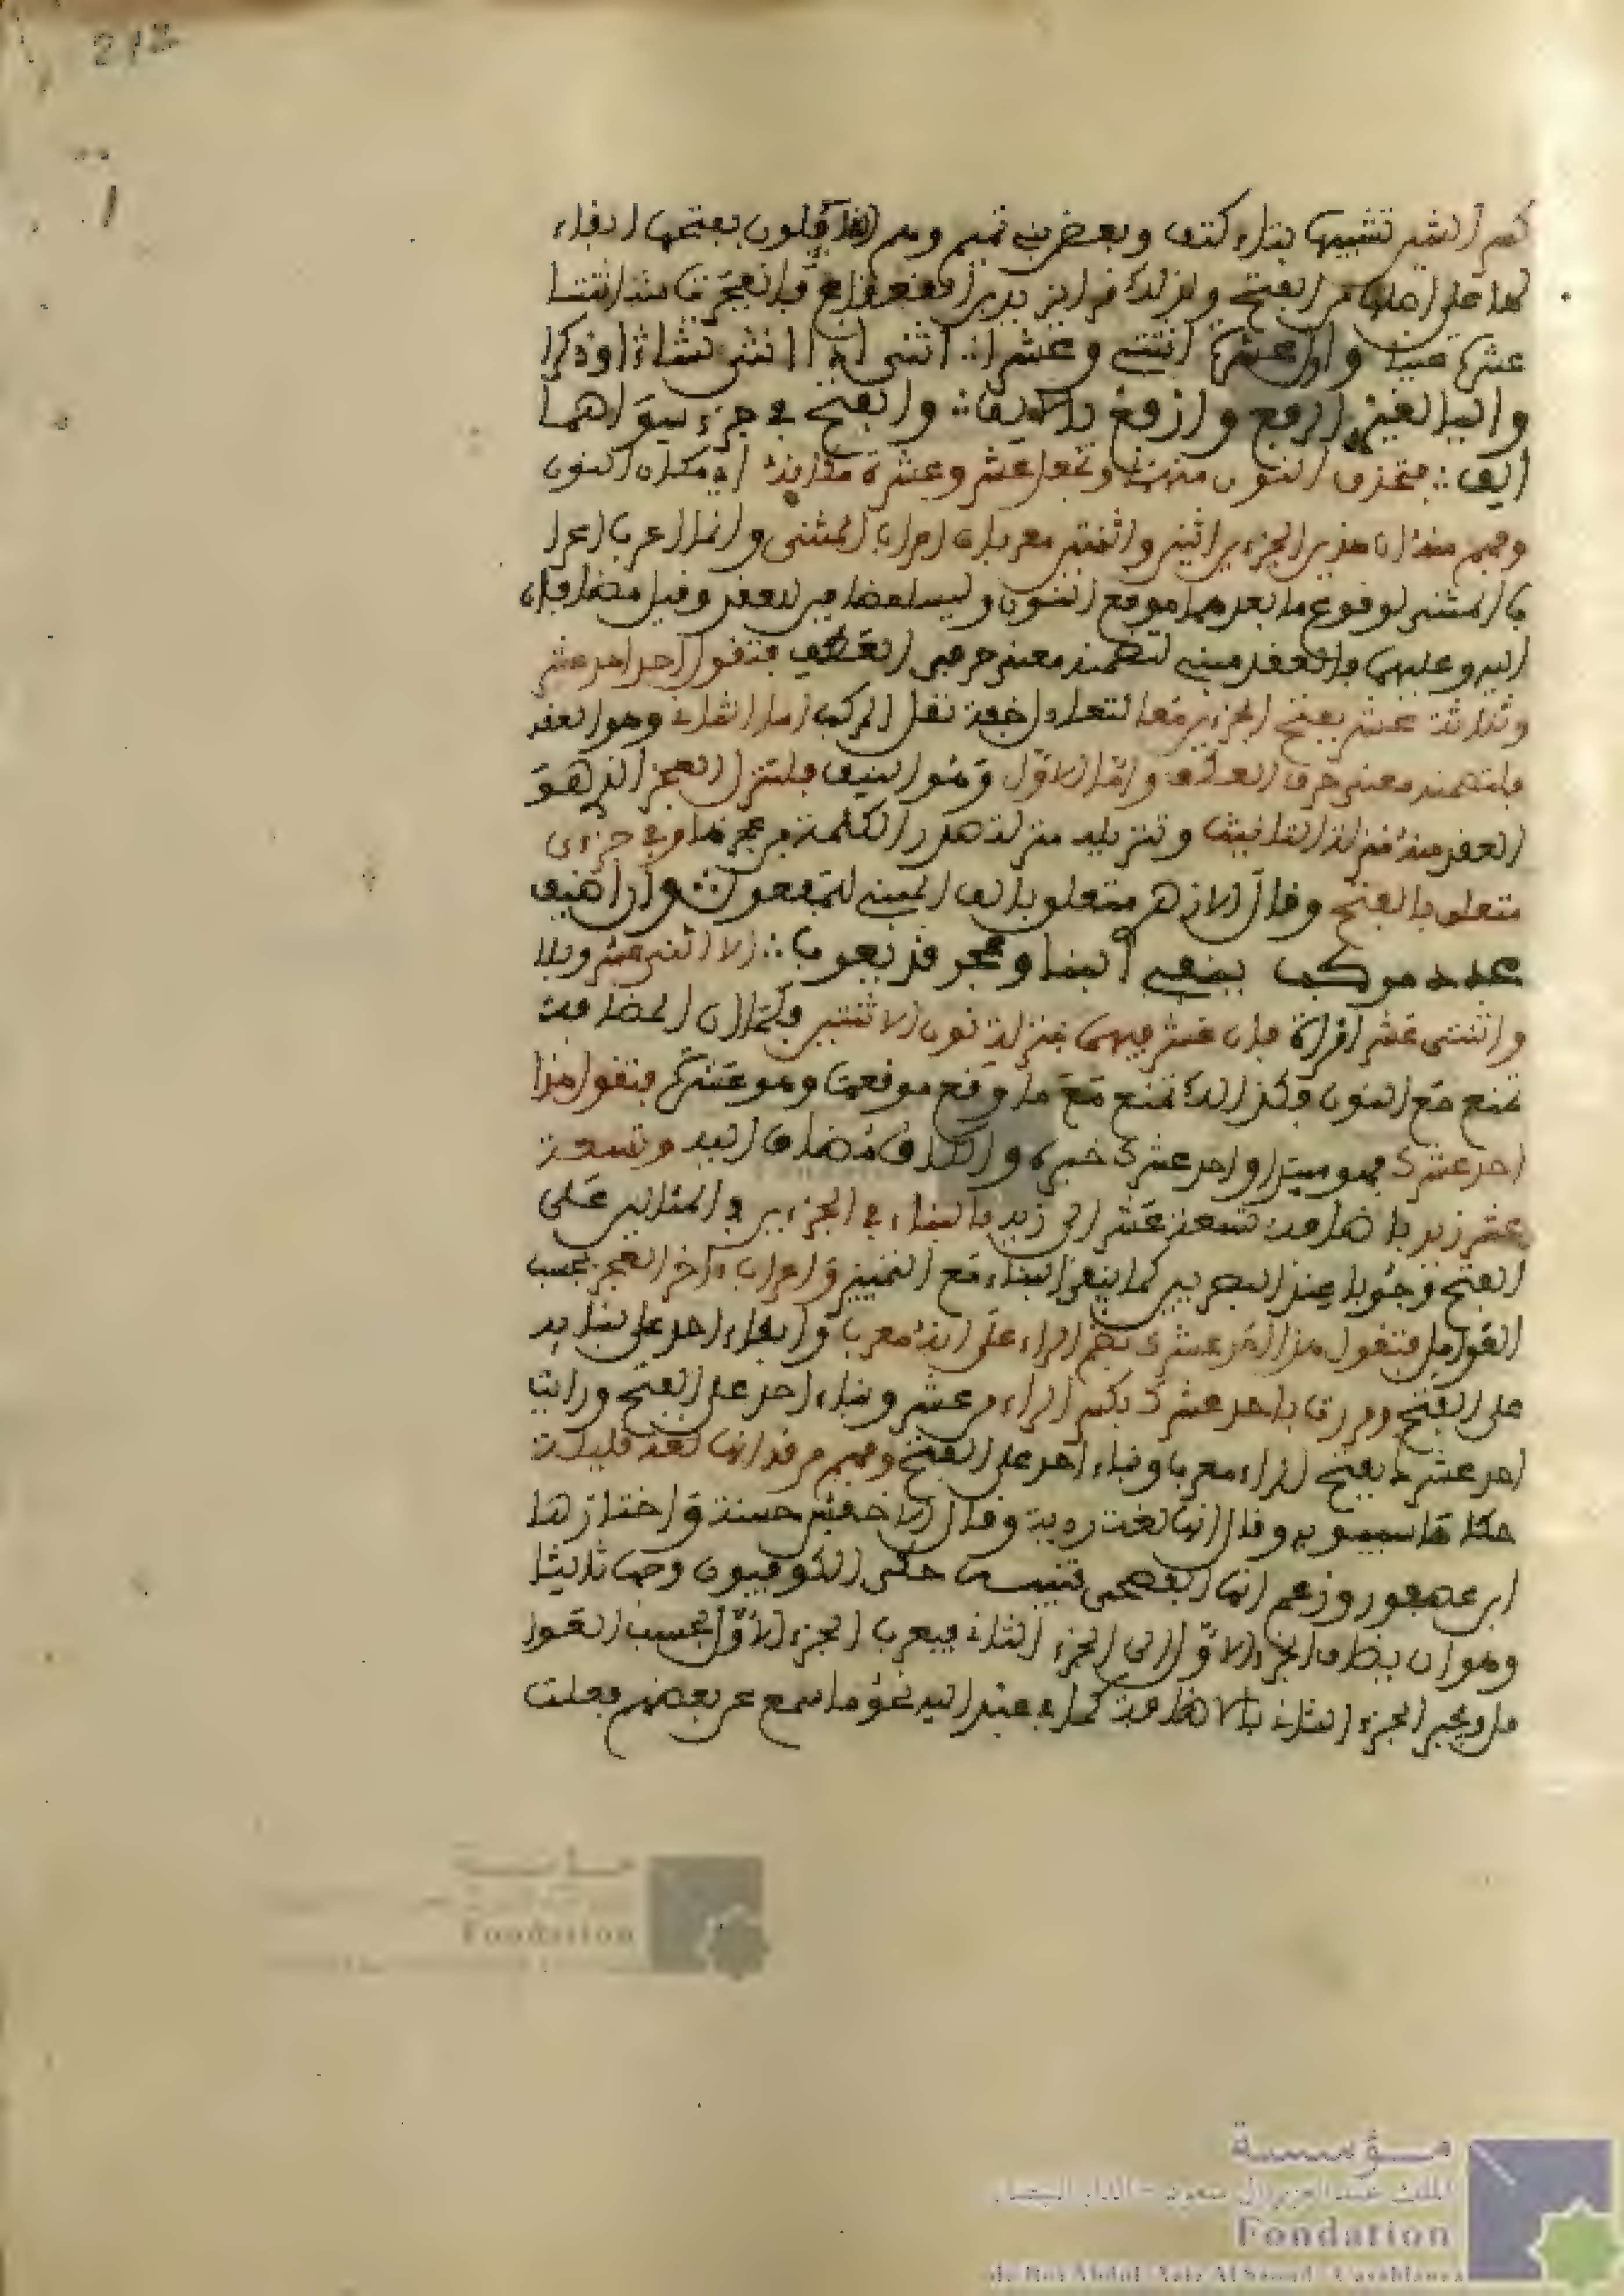 212
كسر الشين تشبيها بتاء كتف وبعض بني تميم وهم القائلون بفتحها ابقاء
لها على اصلها من الفتح وبذلك قرا يزيد بن القعقاع فانفجرت منه اثنتا
عشرة عينا واول عشرة اثنتي وعشرا اثني اذا انثى تشا او ذكرا
واليا لغير الرفع وارفع بالالف والفتح في جزءي سواهما
الف فتحذف النون منهما وتجعل عشر وعشرة مكان النون
وفهم منه ان هذين الجزءين اثنين واثنتين معربان اعراب المثنى وانما اعربا اعرا
ب المثنى لوقوع ما بعدهما موقع النون وليسا مضافين للعقد وقيل مضافان
اليه وعليهما فالعقد مبني لتضمنه معنى حرف العطف فتقول احد عشر
وثلاثة عشر بفتح الجزءين معا لتعادل خفته ثقل المركب اما الثاني وهو العقد
فلتضمنه معنى حرف العطف واما الاول وهو النيف فلتنزل العجز الذي هو
العقد منه منزلة التانيث وتنزيله منزلة صدر الكلمة من عجزها وفي جزءي
متعلق بالفتح وقال الازهر متعلق بالف المبني للمفعول وان اضيف
عدد مركب يبقى البنا وعجز قد يعرب الا اثني عشر
واثنتي عشر امراة فان عشر فيهما بمنزلة نون الاثنين وكما ان الاضافة
تمتع مع النون فكذلك تمتع مع ما وقع موقعها وهو عشر فتقول هذا
احد عشرك والكاف مضاف اليه وتسعة
عشر زيد باضافة تسعة عشر الى زيد بالبناء في الجزءين في المثالين على
الفتح وجوبا عند البصريين كما يبقى البناء مع التمييز واعراب ءاخر العجز بحسب
العوامل فتقول هذا احد عشرك بضم الراء على انه معربا وابقاء احد على بنايه
على الفتح ومررت باحد عشرك بكسر الراء من عشر وبناء احد على الفتح ورايت
احد عشرك بفتح الراء معربا وبناء احد على الفتح وفهم من قد انها لغة قليلة
حكاها سيبويه وقال انها لغة ردية وقال الاخفش حسنة واختارها
ابن عصفور وزعم انها الفصحى تنبيه حكى الكوفيون وجها ثالثا
وهو ان يضاف الجزء الاول الى الجزء الثاني فيعرب الجزء الاول بحسب العوا
مل ويجر الجزء الثاني بالاضافة كما في عبد الله نحو ما سمع من بعضهم فعلت
مؤسسة
Fondation
مؤسسة
الملك عبد العزيز آل سعود - الدار البيضاء
Fondation
du Roi Abdul-Aziz Al Saoud - Casablanca